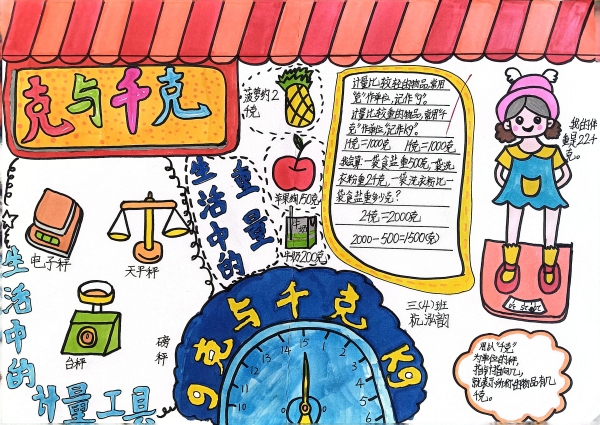 克与千克
菠萝约2
千克
生活中的
重量
苹果约150克
牛奶200克
计量比较轻的物品,常用
"克"作单位,记作"g"。
计量比较重的物品,常用"千
克"作单位,"记作kg"。
1千克=1000克 1kg=1000克
一袋食盐重500克,一袋洗
衣粉重2千克,一袋洗衣粉比一
袋食盐重多少克?
2千克=2000克
2000-500=1500(克)
我的体
重是22千
克。
电子秤
天平秤
台秤
磅
秤
生活中的
计量工具
g克与千克kg
三(4)班
祝泓韵
用以"千克"
为单位的秤,
指针指向几,
就表示所称的物品有几
千克。